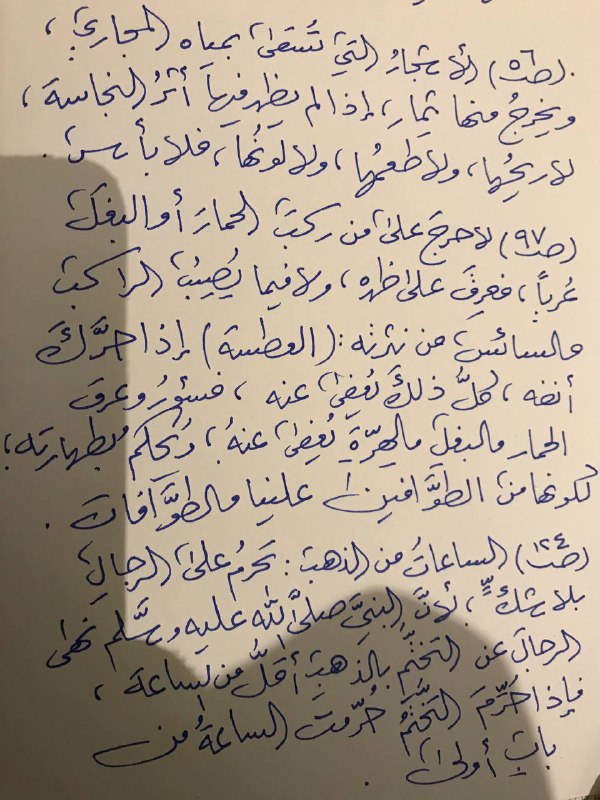 (ص٥٦) الأشجارُ التي تُسقى بمياه المجاري؛
ويخرجُ منها ثمار، إذا لم يظهر فيها أثرُ النجاسة،
لا ريحُها، ولا طعمُها، ولا لونُها، فلا بأس.
(ص٩٧) لا حرجَ على من ركبَ الحمارَ أو البغلَ
عُرياً، فعرِقَ على ظهره، ولا فيما يُصيبُ الراكبَ
والسائسَ من نثرته: (العطسة) إذا حرَّكَ
أنفه، كلُّ ذلك يُعفى عنه، فسؤرُ وعرقُ
الحمار والبغلِ والهرّةِ يُعفى عنهُ؛ ويُحكم بطهارته؛
لكونها من الطوَّافين علينا والطوَّافات.
(ص١٢٤) الساعاتُ من الذهب: تحرمُ على الرجالِ
بلا شكٍّ؛ لأنَّ النبيَّ صلى الله عليه وسلّم نهى
الرجالَ عن التختُّم بالذهبِ أقلُّ من الساعة،
فإذا حَرُمَ التختُّمُ حُرّمت الساعةُ من
بابِ أولى.